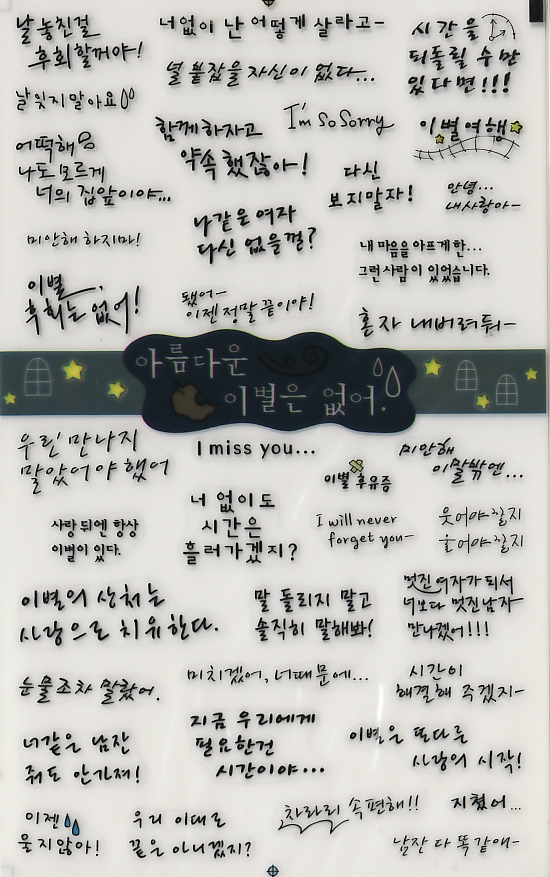 날 놓친걸
후회할꺼야!
너없이 난 어떻게 살라고-
시간을
되돌릴 수만
있다면!!!
널 붙잡을 자신이 없다...
날 잊지말아요
함께하자고
약속했잖아!
I'm So Sorry
이별여행
어떡해
나도모르게
너의 집앞이야...
다신
보지말자!
안녕...
내사랑아-
나같은여자
다신 없을껄?
미안해 하지마!
내 마음을 아프게한...
그런사람이 있었습니다.
이별,
후회는 없어!
됐어-
이젠정말끝이야!
혼자 내버려둬-
아름다운
이별은 없어.
우린 만나지
말았어야했어
I miss you...
미안해
이말밖엔...
이별 후유증
너 없이도
시간은
흘러가겠지?
사랑 뒤엔 항상
이별이 있다.
I will never
forget you-
웃어야할지
울어야할지
이별의 상처는
사랑으로 치유한다.
말 돌리지 말고
솔직히 말해봐!
멋진여자가되서
너보다 멋진남자
만나겠어!!!
눈물조차 말랐어.
미치겠어, 너때문에...
시간이
해결해 주겠지-
지금 우리에게
필요한건
시간이야...
너같은 남잔
줘도 안가져!
이별은 또다른
사랑의 시작!
이젠
울지않아!
우리 이대로
끝은아니겠지?
차라리 속편해!!
지쳤어...
남잔 다 똑같애-